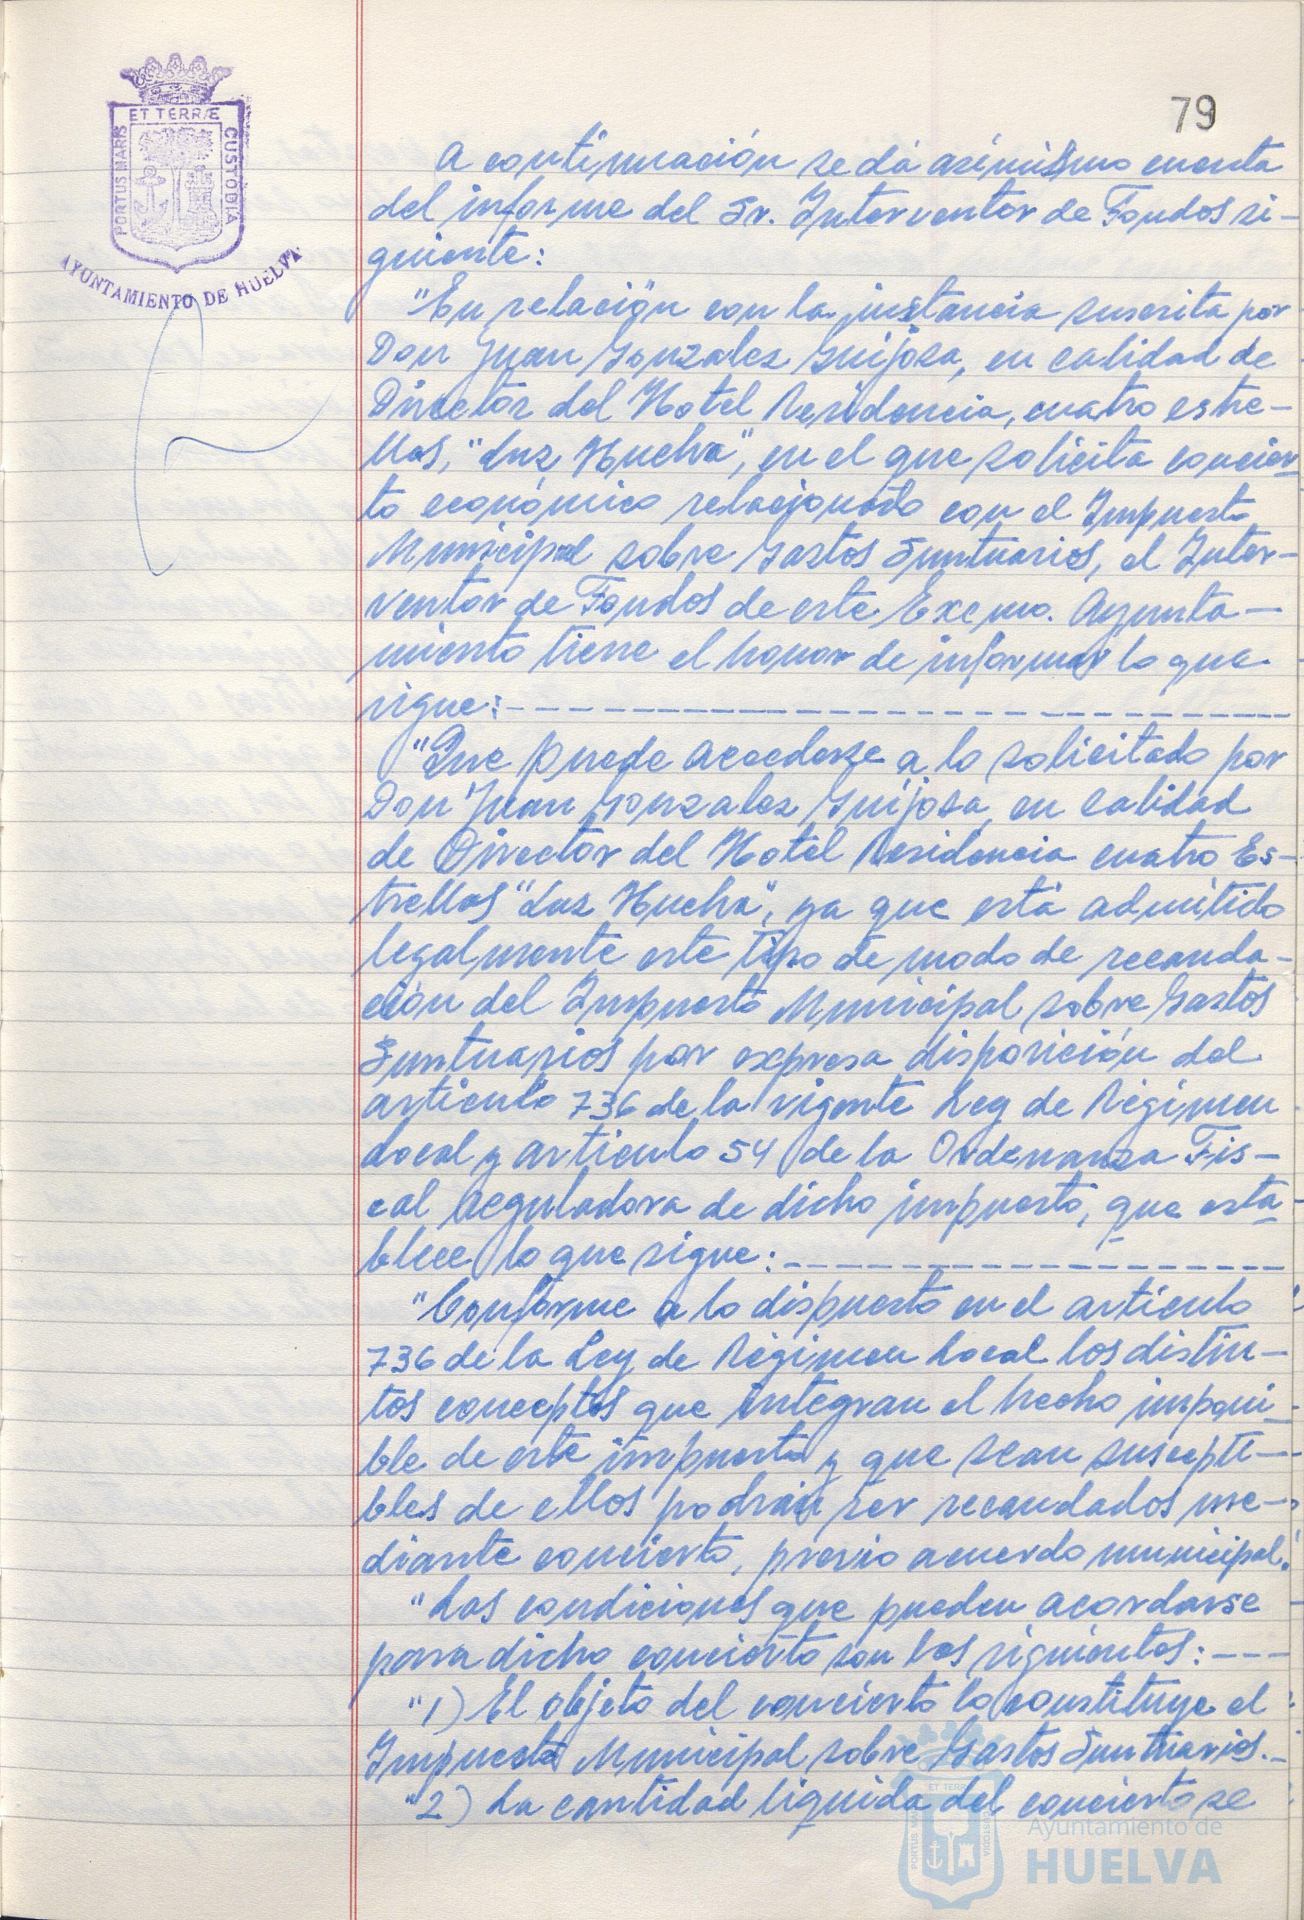 79
ET TERRÆ
PORTUS MARIS
CUSTODIA
AYUNTAMIENTO DE HUELVA
A continuación se dá asimismo cuenta
del informe del Sr. Interventor de Fondos si-
guiente:
"En relación con la instancia suscrita por
Don Juan Gonzalez Guijosa, en calidad de
Director del Hotel Residencia, cuatro estre-
llas, "Luz Huelva", en el que solicita concier-
to económico relacionado con el Impuesto
Municipal sobre Gastos Suntuarios, el Inter-
ventor de Fondos de este Excmo. Ayunta-
miento tiene el honor de informar lo que
sigue:
"Que puede accederse a lo solicitado por
Don Juan Gonzalez Guijosa, en calidad
de Director del Hotel Residencia cuatro Es-
trellas "Luz Huelva", ya que está admitido
legalmente este tipo de modo de recauda-
ción del Impuesto Municipal sobre Gastos
Suntuarios por expresa disposición del
artículo 736 de la vigente Ley de Régimen
Local y artículo 54 de la Ordenanza Fis-
cal Reguladora de dicho impuesto, que esta-
blece lo que sigue:
"Conforme a lo dispuesto en el artículo
736 de la Ley de Régimen Local los distin-
tos conceptos que integran el hecho imponi-
ble de este impuesto y que sean suscepti-
bles de ellos podrán ser recaudados me-
diante concierto, previo acuerdo municipal.
"Las condiciones que pueden acordarse
para dicho concierto son las siguientes:
"1) El objeto del concierto lo constituye el
Impuesto Municipal sobre Gastos Suntuarios.-
"2) La cantidad líquida del concierto se
ET TERRÆ
PORTUS MARIS
CUSTODIA
Ayuntamiento de
HUELVA